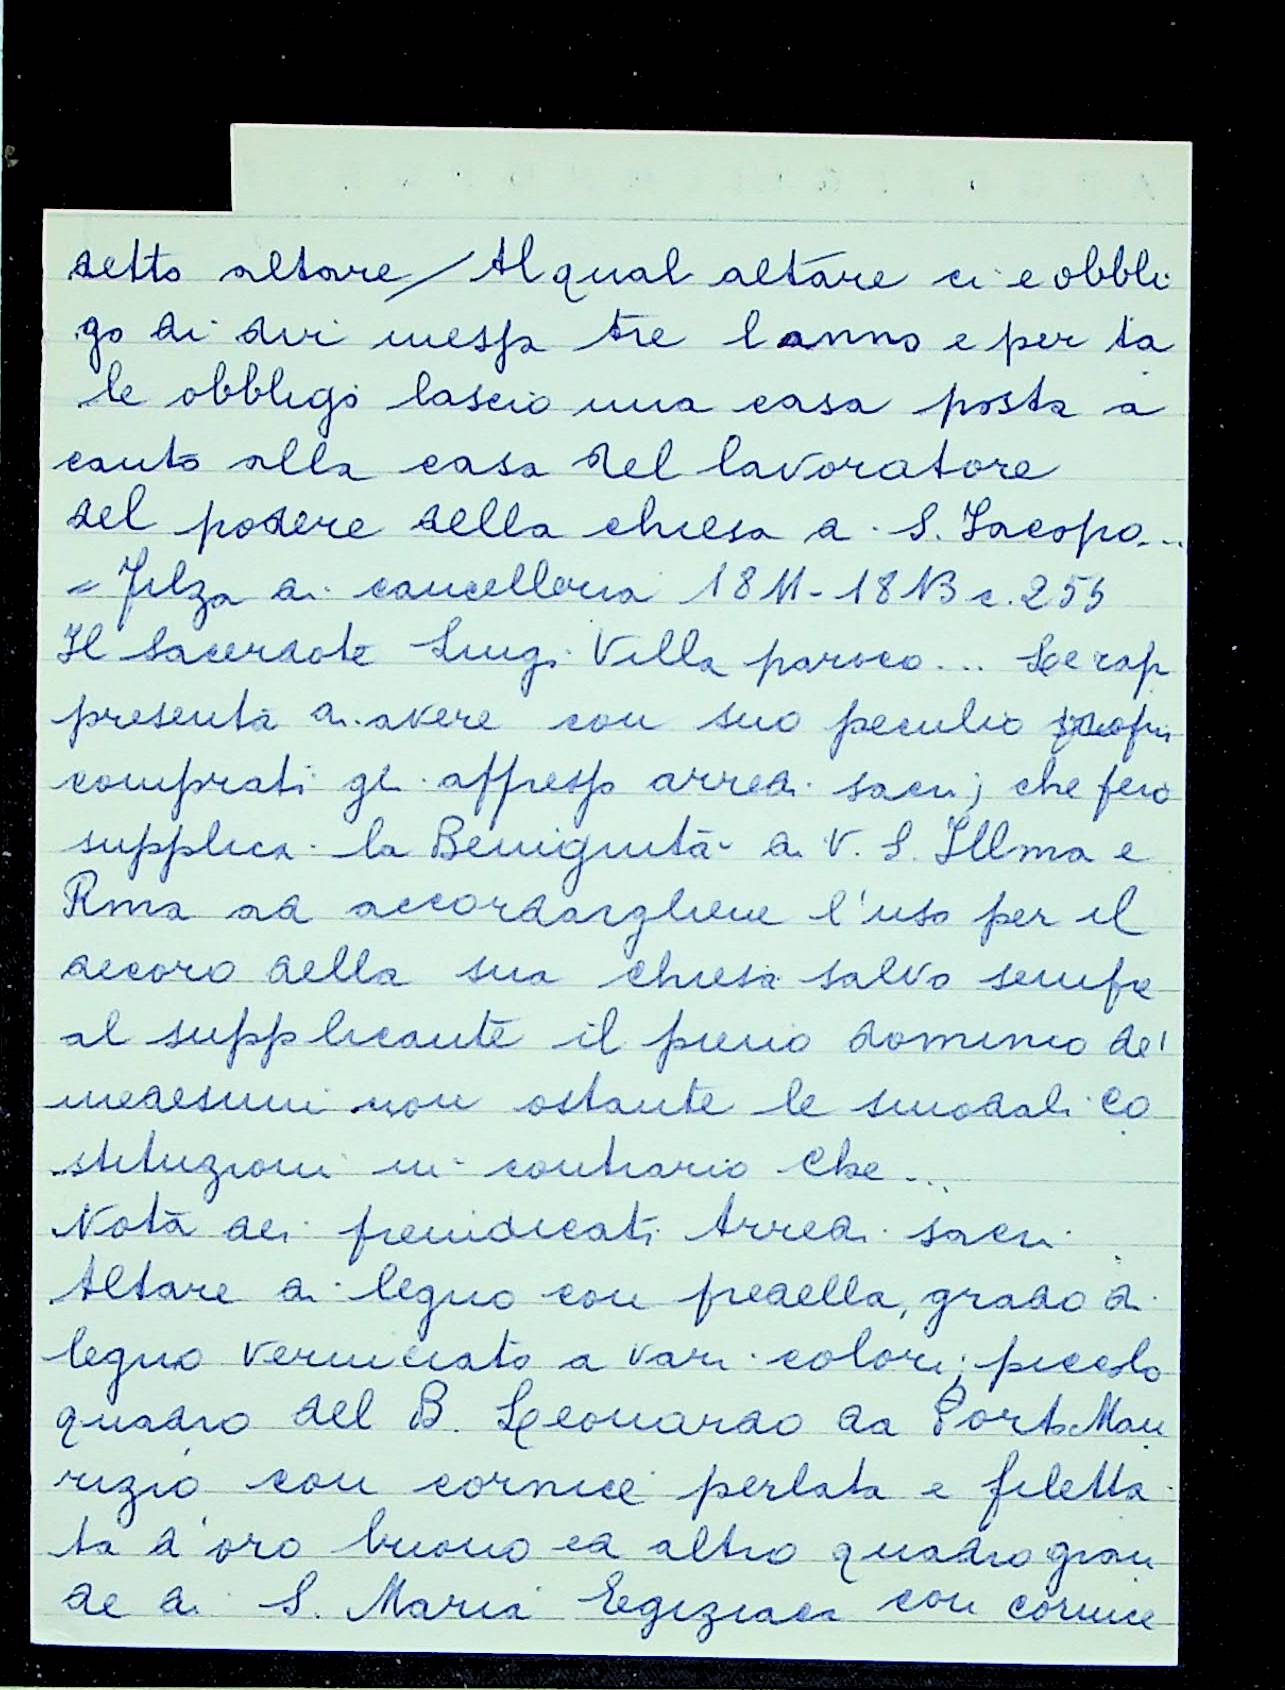 detto altare / Al qual altare ci e obbli
go di dir messa tre l anno e per ta
le obbligo lascio una casa posta a
canto alla casa del lavoratore
del podere della chiesa a. S. Iacopo...
= Filza di cancelleria 1811-1813 c. 255
Il Sacerdote Luigi Villa paroco... Le rap
presenta di avere con suo peculio propri
comprati gli appresso arredi sacri; che però
supplica la Benignità di V. S. Illma e
Rma ad accordargliene l'uso per il
decoro della sua chiesa salvo sempre
al supplicante il pieno dominio de'
medesimi non ostante le sinodali co
stituzioni in contrario che...
Nota dei preindicati Arredi sacri
Altare di legno con predella, grado di
legno verniciato a vari colori; piccolo
quadro del B. Leonardo da Porto Mau
rizio con cornice perlata e filetta
ta d'oro buono ed altro quadro gran
de di S. Maria Egiziaca con cornice